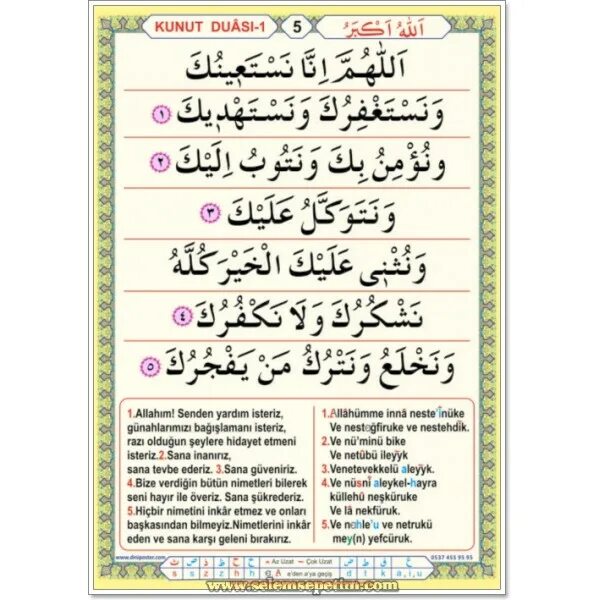 KUNUT DUÂSI-1
5
اَللّٰهُ اَكْبَرُ
اَللّٰهُمَّ اِنَّا نَسْتَعٖينُكَ
وَنَسْتَغْفِرُكَ وَنَسْتَهْدٖيكَ ١
وَنُؤْمِنُ بِكَ وَنَتُوبُ اِلَيْكَ ٢
وَنَتَوَكَّلُ عَلَيْكَ ٣
وَنُثْنٖى عَلَيْكَ الْخَيْرَ كُلَّهُ
نَشْكُرُكَ وَلَا نَكْفُرُكَ ٤
وَنَخْلَعُ وَنَتْرُكُ مَنْ يَفْجُرُكَ ٥
1.Allahım! Senden yardım isteriz,
günahlarımızı bağışlamanı isteriz,
razı olduğun şeylere hidayet etmeni
isteriz.2.Sana inanırız,
sana tevbe ederiz. 3.Sana güveniriz.
4.Bize verdiğin bütün nimetleri bilerek
seni hayır ile överiz. Sana şükrederiz.
5.Hiçbir nimetini inkâr etmez ve onları
başkasından bilmeyiz.Nimetlerini inkâr
eden ve sana karşı geleni bırakırız.
1.Allâhümme innâ neste'înüke
Ve nestoğfiruke ve nestehdîk.
2.Ve nü'minü bike
Ve netûbü ileyÿk
3.Venetevekkelü aleyÿk.
4.Ve nüsnî aleykel-hayra
küllehû neşküruke
Ve lâ nekfüruk.
5.Ve nahle'u ve netrukü
mey(n) yefcüruk.
www.dinposter.com
Az Uzat
Çok Uzat
e'den a'ya geçiş
0537 455 95 95
www.selemsepetim.com